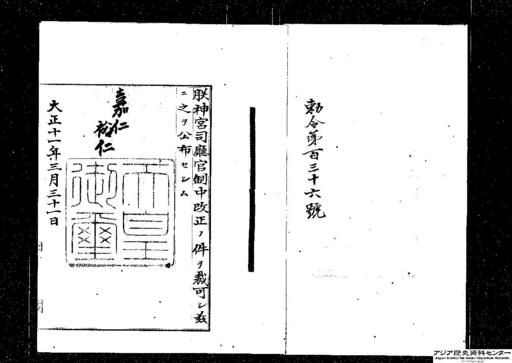 勅令第百三十六號
朕神宮司廳官制中改正ノ件ヲ裁可シ茲
ニ之ヲ公布セシム
嘉仁
裕仁
天皇
御璽
大正十一年三月三十一日
アジア歴史資料センター
Japan Center for Asian Historical Records